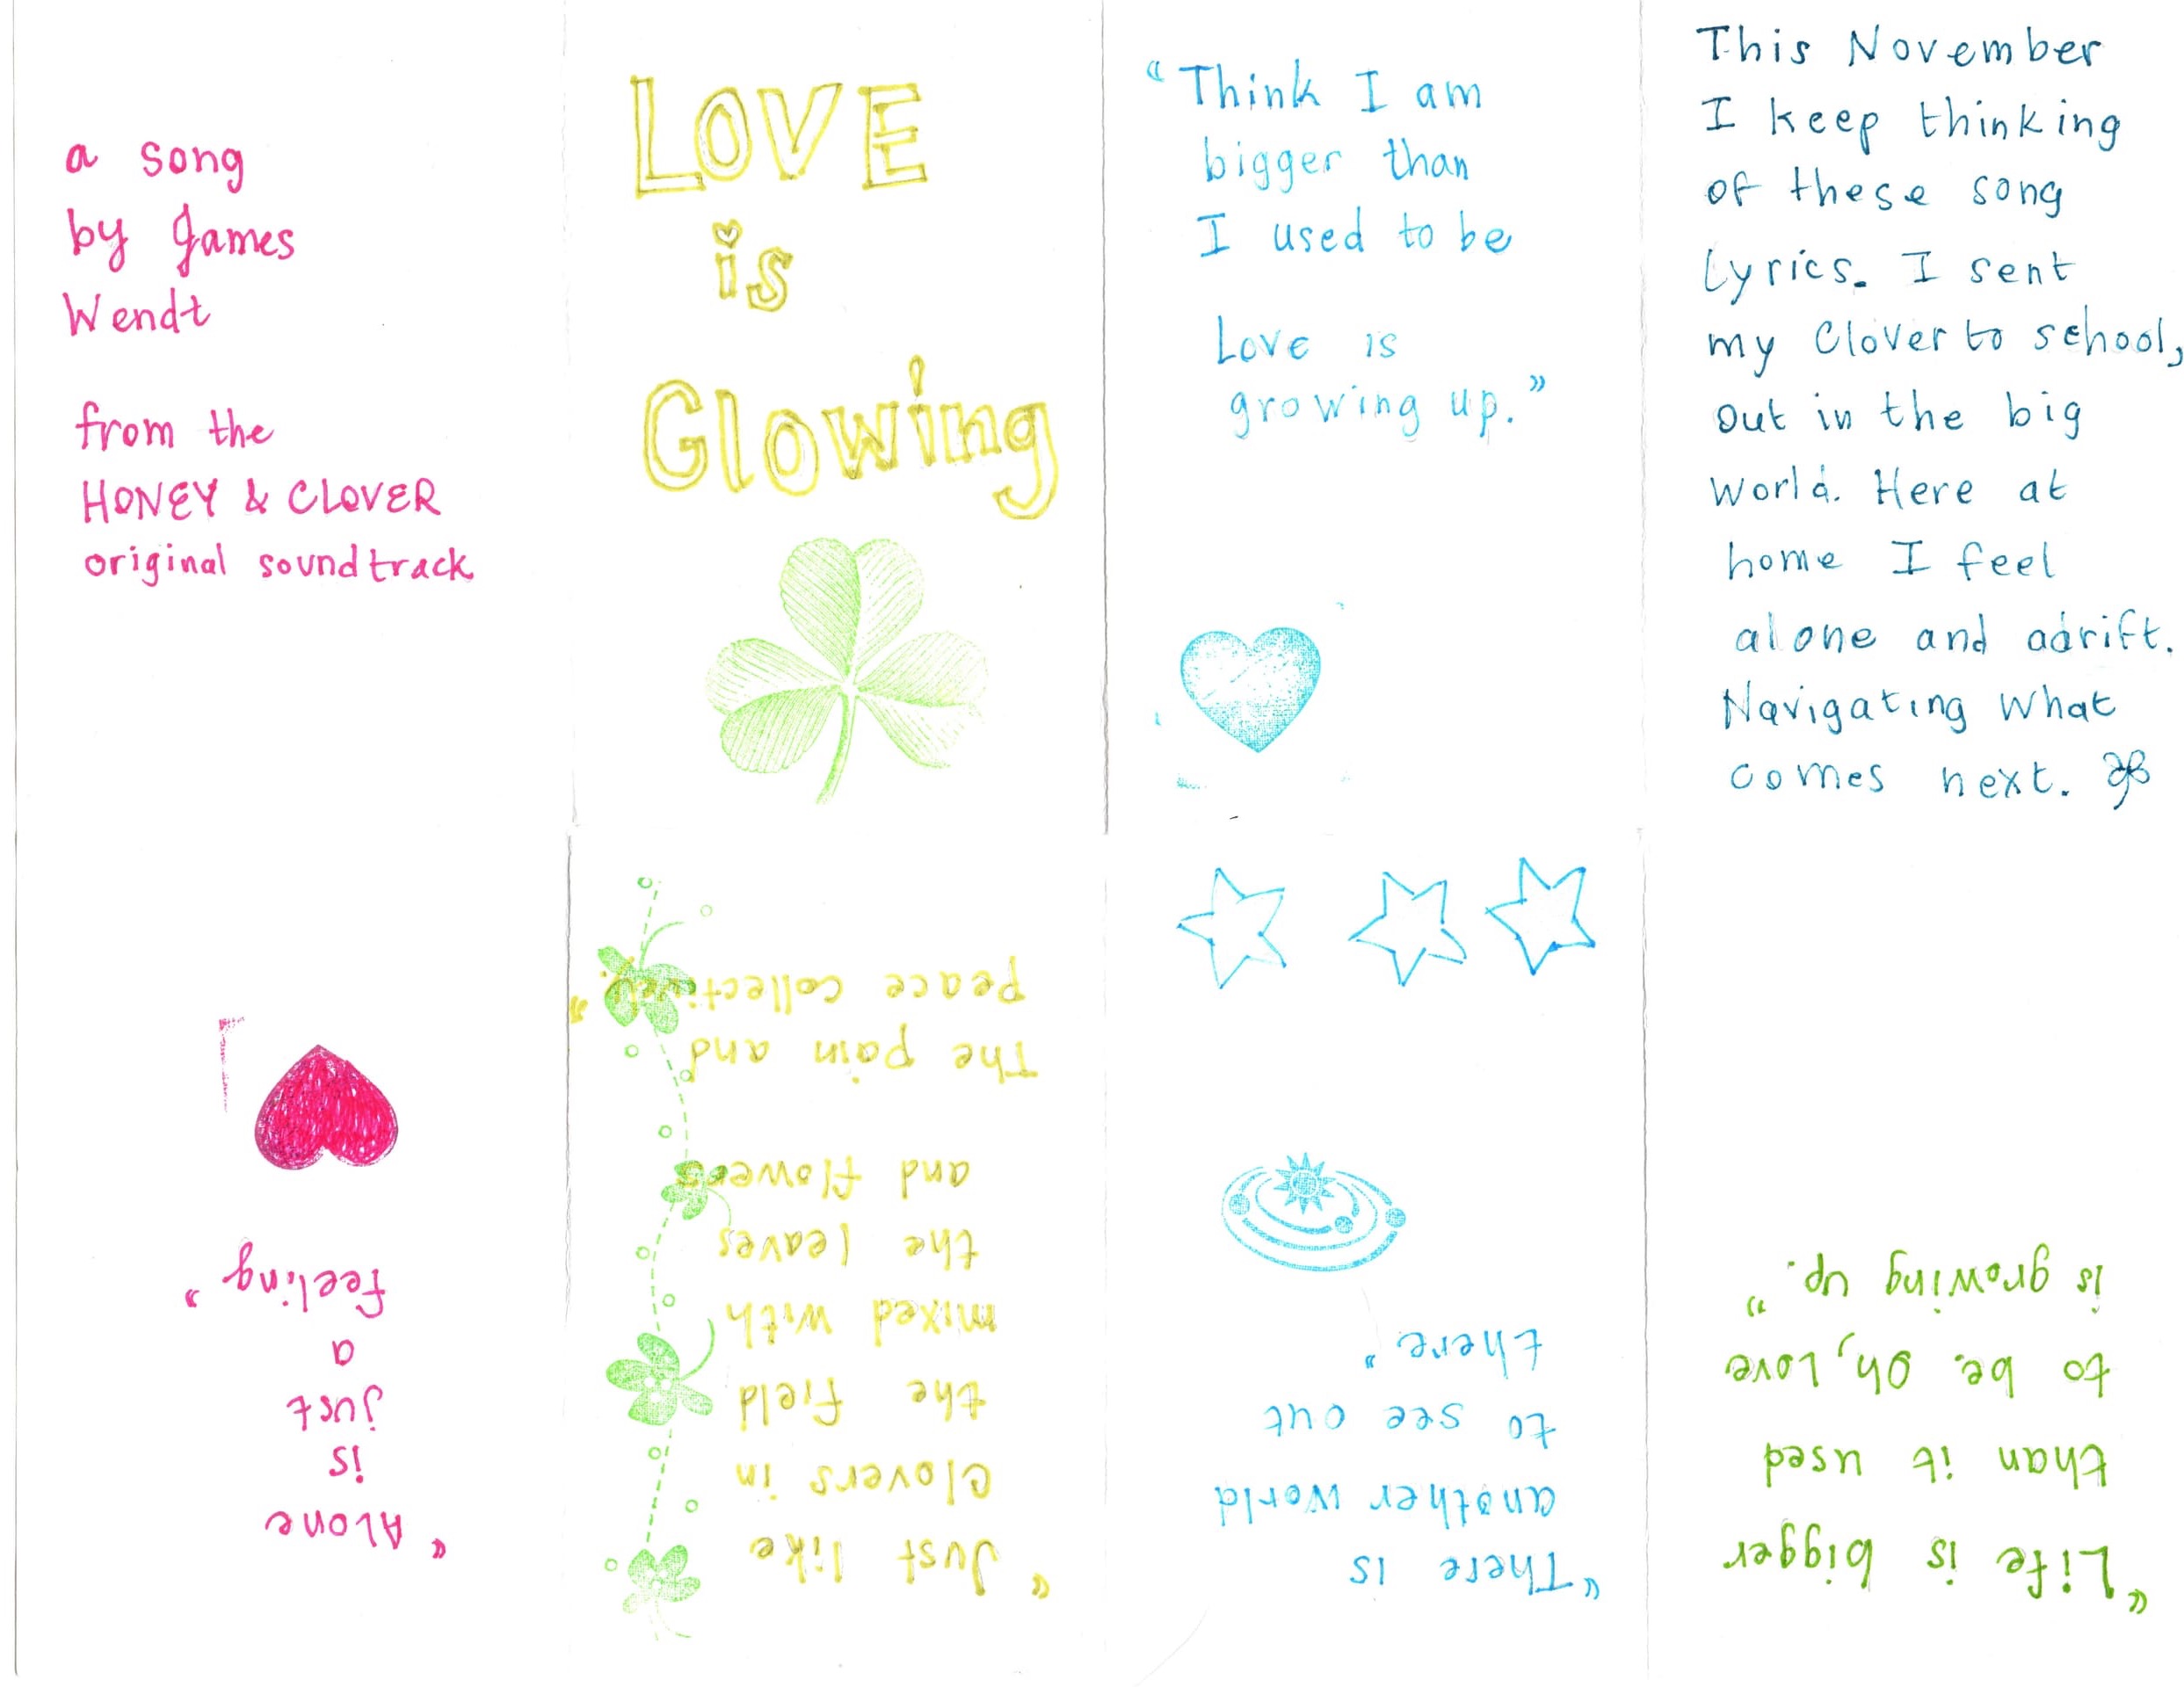 a song
by James
Wendt
from the
HONEY & CLOVER
original soundtrack
LOVE
is
Glowing
“Think I am
bigger than
I used to be
Love is
growing up.”
This November
I keep thinking
of these song
lyrics. I sent
my Clover to school,
out in the big
world. Here at
home I feel
alone and adrift.
Navigating what
comes next.
“Alone
is
just
a
feeling”
“Just like
Clovers in
the field
mixed with
the leaves
and flowers
The pain and
peace collectively.”
“There is
another world
to see out
there.”
“Life is bigger
than it used
to be. Oh, love
is growing up.”